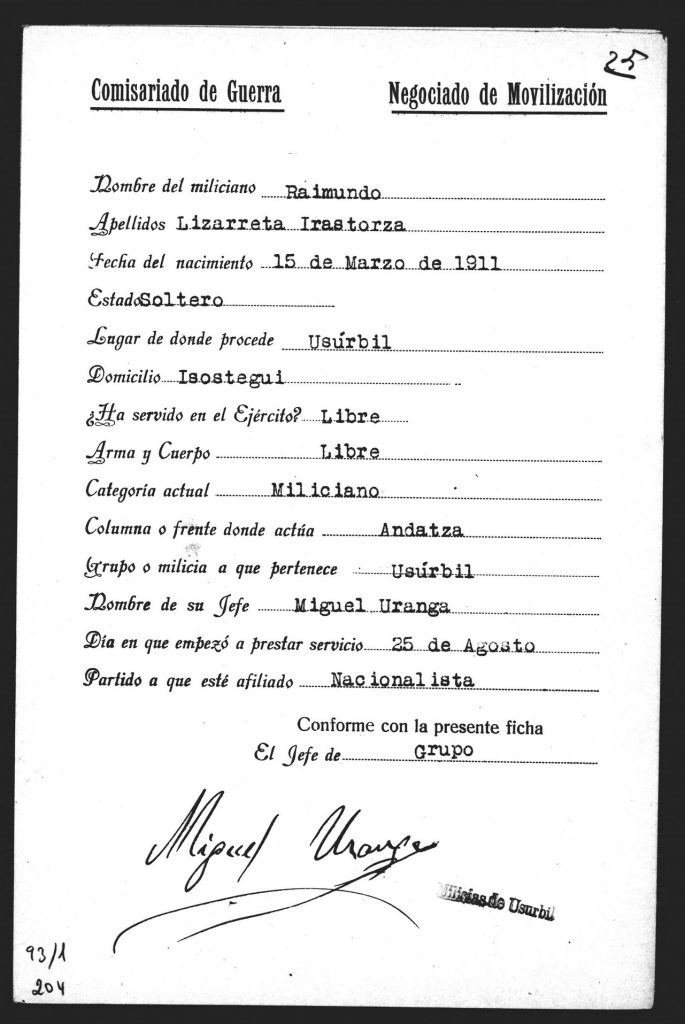 25
Comisariado de Guerra Negociado de Movilización
Nombre del miliciano Raimundo
Apellidos Lizarreta Irastorza
Fecha del nacimiento 15 de Marzo de 1911
Estado Soltero
Lugar de donde procede Usúrbil
Domicilio Isostegui
¿Ha servido en el Ejército? Libre
Arma y Cuerpo Libre
Categoría actual Miliciano
Columna o frente donde actúa Andatza
Grupo o milicia a que pertenece Usúrbil
Nombre de su Jefe Miguel Uranga
Día en que empezó a prestar servicio 25 de Agosto
Partido a que esté afiliado Nacionalista
Conforme con la presente ficha
El Jefe de Grupo
Miguel Uranga
Milicias de Usurbil
93/1
204